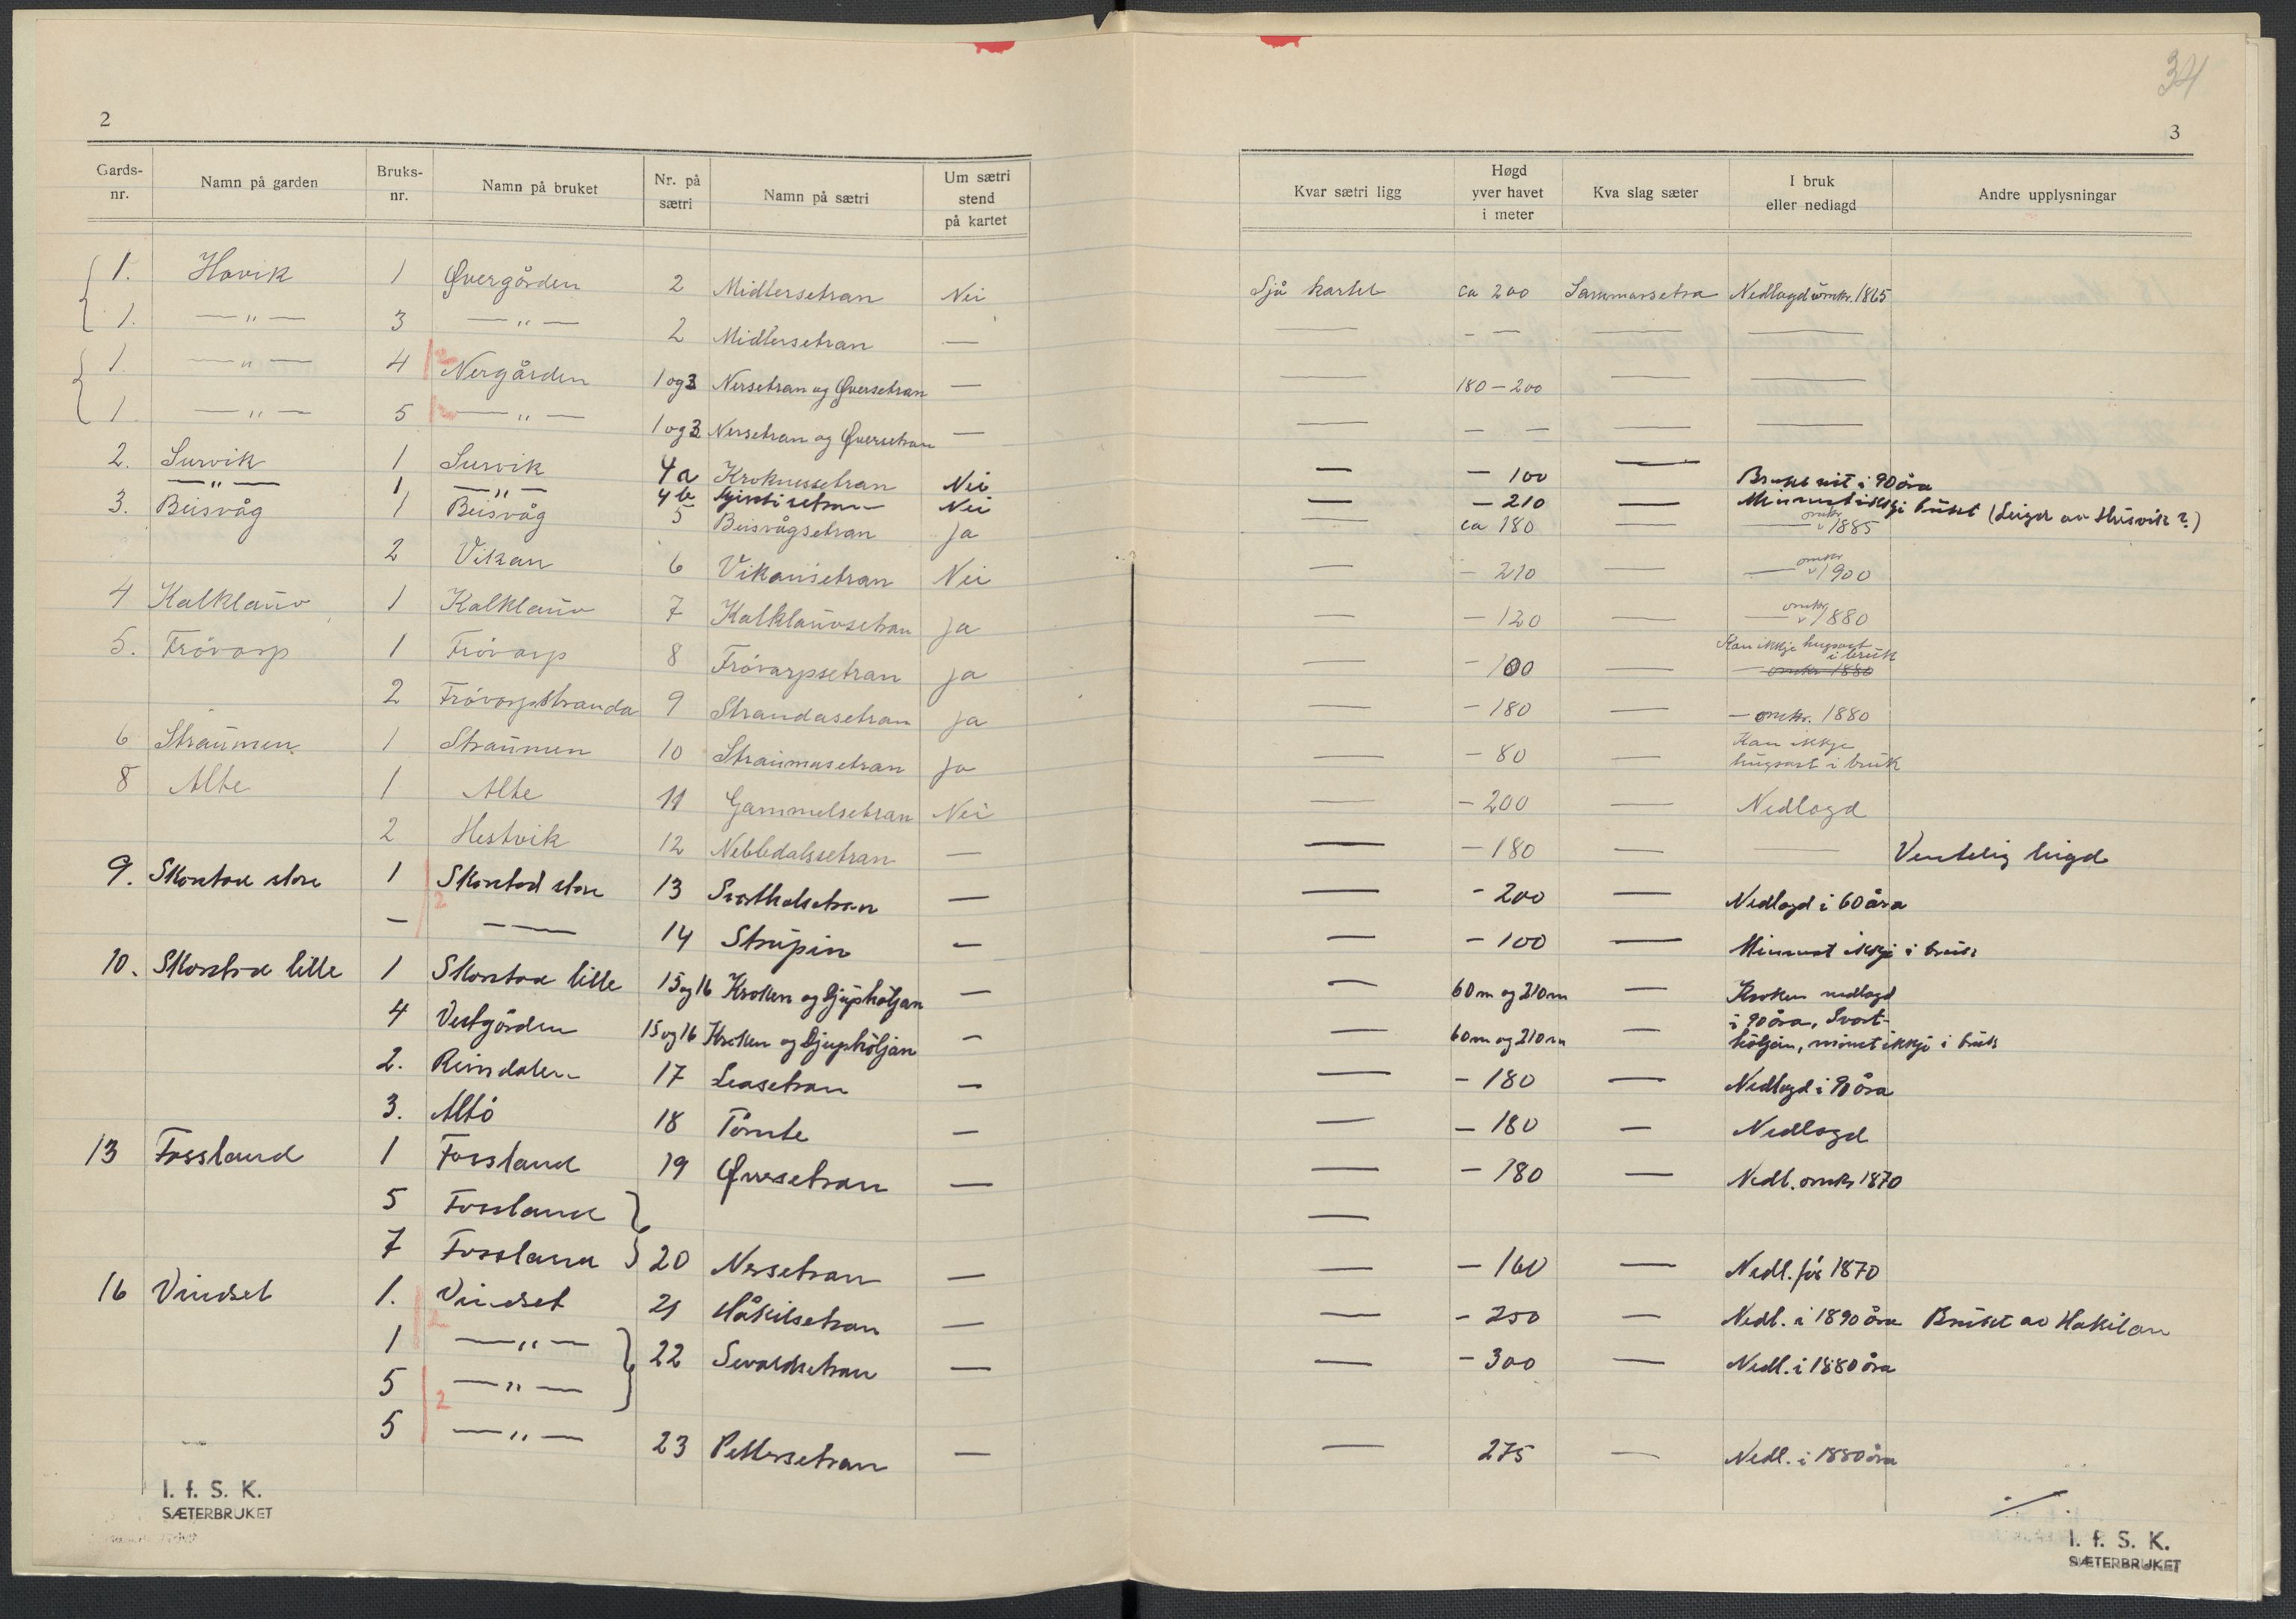 34
2
3
Gards-nr. Namn på garden Bruks-nr. Namn på bruket Nr. på sætri Namn på sætri Um sætri stend på kartet Kvar sætri ligg Høgd yver havet i meter Kva slag sæter I bruk eller nedlagd Andre upplysningar
1. Hovik 1 Øvergården 2 Midtersetran Nei Sjå kartet ca 200 Sammarsetra Nedlagd omkr. 1865
1. — " — 3 — " — 2 Midtersetran — — - — — —
1. — " — 4 2 Nergården 1 og 3 Nersetran og Øversetran — — 180 - 200 — —
1 — " — 5 — " — 1 og 3 Nersetran og Øversetran — — - - — —
2. Survik 1 Survik 4a Kroknessetran Nei — - 100 — i 90 åra
— " — 1 — " — 4b Nei — - 210 — ikkje bukt (Leigd av Husvik?)
3. Beisvåg 1 Beisvåg 5 Beisvågsetran ja — ca 180 — — omkr 1885
2 Vikan 6 Vikansetran Nei — - 210 — — omkr 1900
4 Kalklauv 1 Kalklauv 7 Kalklauvsetran ja — - 120 — — omkr 1880
5. Frövarp 1 Frövarp 8 Frövarpsetran ja — - 100 — Kan ikkje hugsast i bruk
— omkr 1880
2 Frövarpstranda 9 Strandasetran ja — - 180 — — omkr. 1880
6 Straumen 1 Straumen 10 Straumasetran ja — - 80 — Kan ikkje hugsast i bruk
8 Alte 1 Alte 11 Gammelsetran Nei — - 200 — Nedlagd
2 Hestvik 12 Nebbdalssetran — — - 180 — — Ventelig leigd
9. Skorstad store 1 Skorstad store 13 — — - 200 — Nedlagd i 60 åra
— 2 — — 14 Strupin — — - 100 — Minnast ikkje i bruk
10. Skorstad lille 1 Skorstad lille 15 og 16 Kroken og Djuphöljan — — 60 m og 210 m — Kroken nedlagd
4 Vestgården 15 og 16 Kroken og Djuphöljan — — 60 m og 210 m — i 90 åra, Svart-
höljan, minst ikkje i bruk
2. Reindalen 17 Leasetran — — - 180 — Nedlagd i 90 åra
3. Altö 18 Tömte — — - 180 — Nedlagd
13 Fossland 1 Fossland 19 Øversetran — — - 180 — Nedl. omkr 1870
5 Fossland —
7 Fossland 20 Nersetran — — - 160 — Nedl. før 1870
16 Vindset 1. Vindset 21 Håkilsetran — — - 250 — Nedl. i 1890 åra Bruket av Hakilan
2
1 — " — 22 Sevaldsetran — — - 300 — Nedl. i 1880 åra
5 — " —
2
5 — " — 23 Pettersetran — — 275 — Nedl. i 1880 åra
I. f. S. K.
SÆTERBRUKET
I. f. S. K.
SÆTERBRUKET